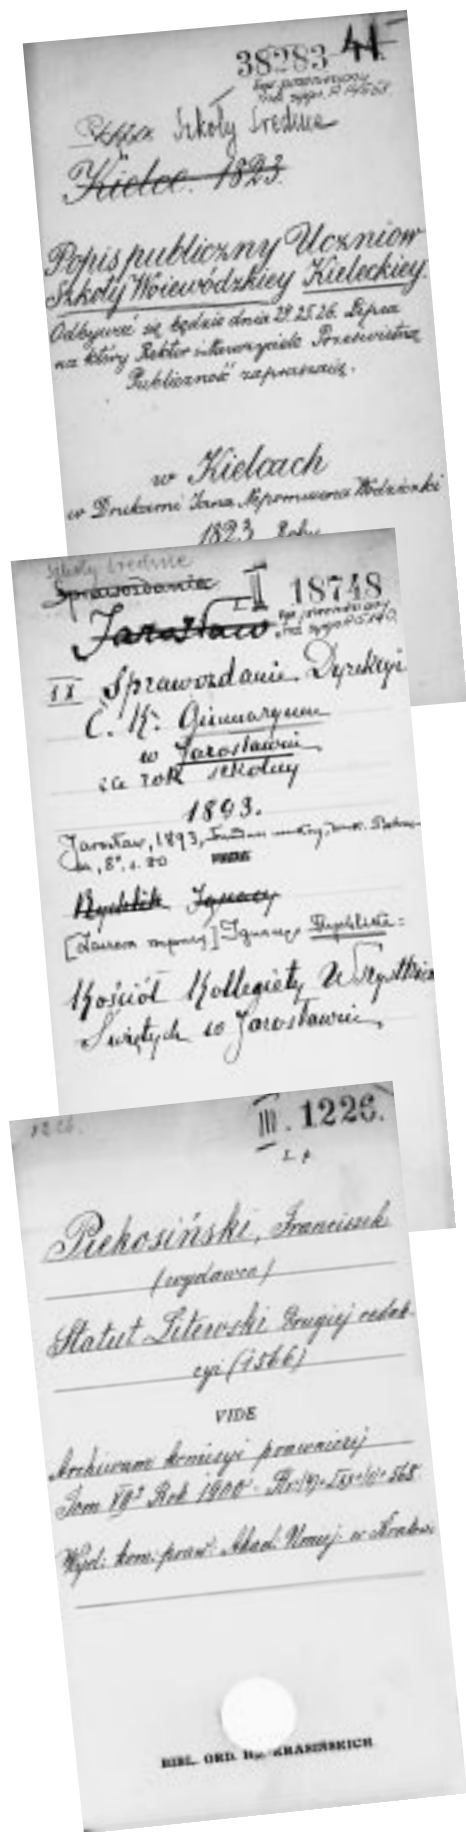 38283 41.
Szkoły średnie
Kielce. 1823.
Popis publiczny Uczniów
Szkoły Woiewódzkiey Kieleckiey.
Odbywać się będzie dnia 24.25.26. Lipca
na który Rektor i Nauczyciele Prześwietną
Publiczność zapraszaią.
w Kielcach
w Drukarni Jana Nepomucena Wodziczki
1823 Roku
Szkoły średnie
Sprawozdania II 18748
Jarosław.
IX Sprawozdanie Dyrekcyi
C. K. Gimnazyum
w Jarosławiu
za rok szkolny
1893.
Jarosław, 1893,
8°, s. 80
Rychlik Ignacy
[Zawiera rozprawę] Ignacego Rychlika:
Kościół Kollegiaty Wszystkich
Świętych w Jarosławiu,
III. 1226.
Piekosiński, Franciszek
(wydawca)
Statut Litewski drugiej redak-
cyi (1566)
VIDE
Archiwum komisyi prawniczej
Tom VII Rok 1900
Wyd: kom: praw: Akad: Umiej: w Krakow:
BIBL. ORD. KRASIŃSKICH